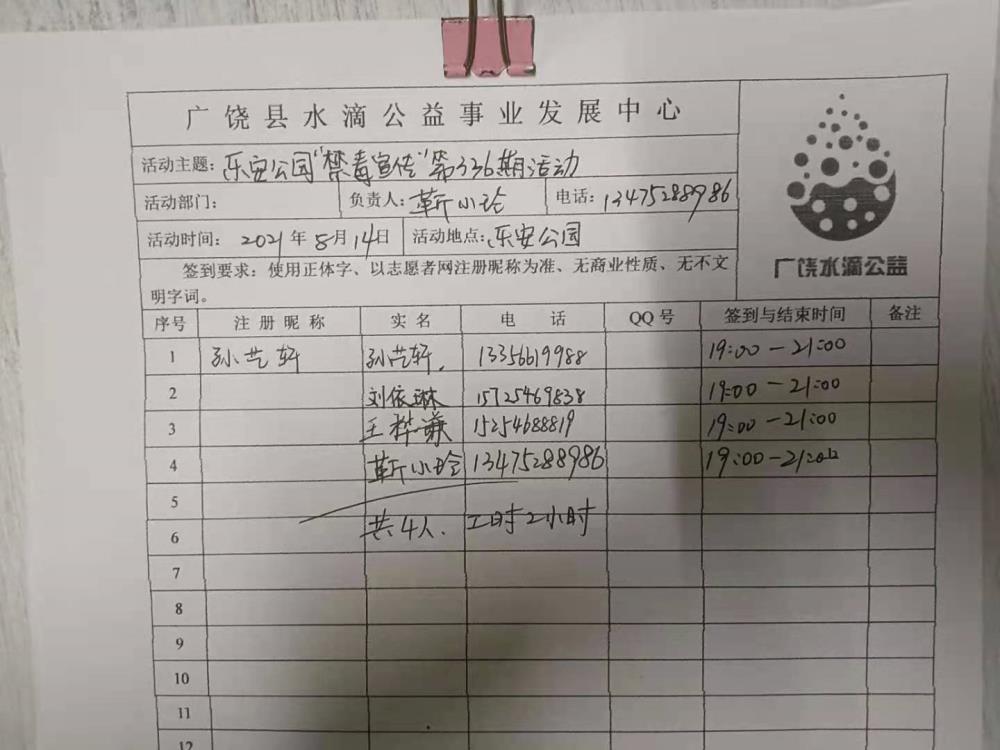 广饶县水滴公益事业发展中心
活动主题：乐安公园"禁毒宣传"第336期活动
活动部门： 负责人：靳小玲 电话：13475288986
活动时间：2021年8月14日 活动地点：乐安公园
签到要求：使用正体字、以志愿者网注册昵称为准、无商业性质、无不文
明字词。
广饶水滴公益
序号 注册昵称 实名 电话 QQ号 签到与结束时间 备注
1 孙艺轩 孙艺轩. 13356619988 19:00-21:00
2 刘依琳 15725469838 19:00-21:00
3 王桦谦 15254688819 19:00-21:00
4 靳小玲 13475288986 19:00-21:00
5
6 共4人. 工时2小时
7
8
9
10
11
12